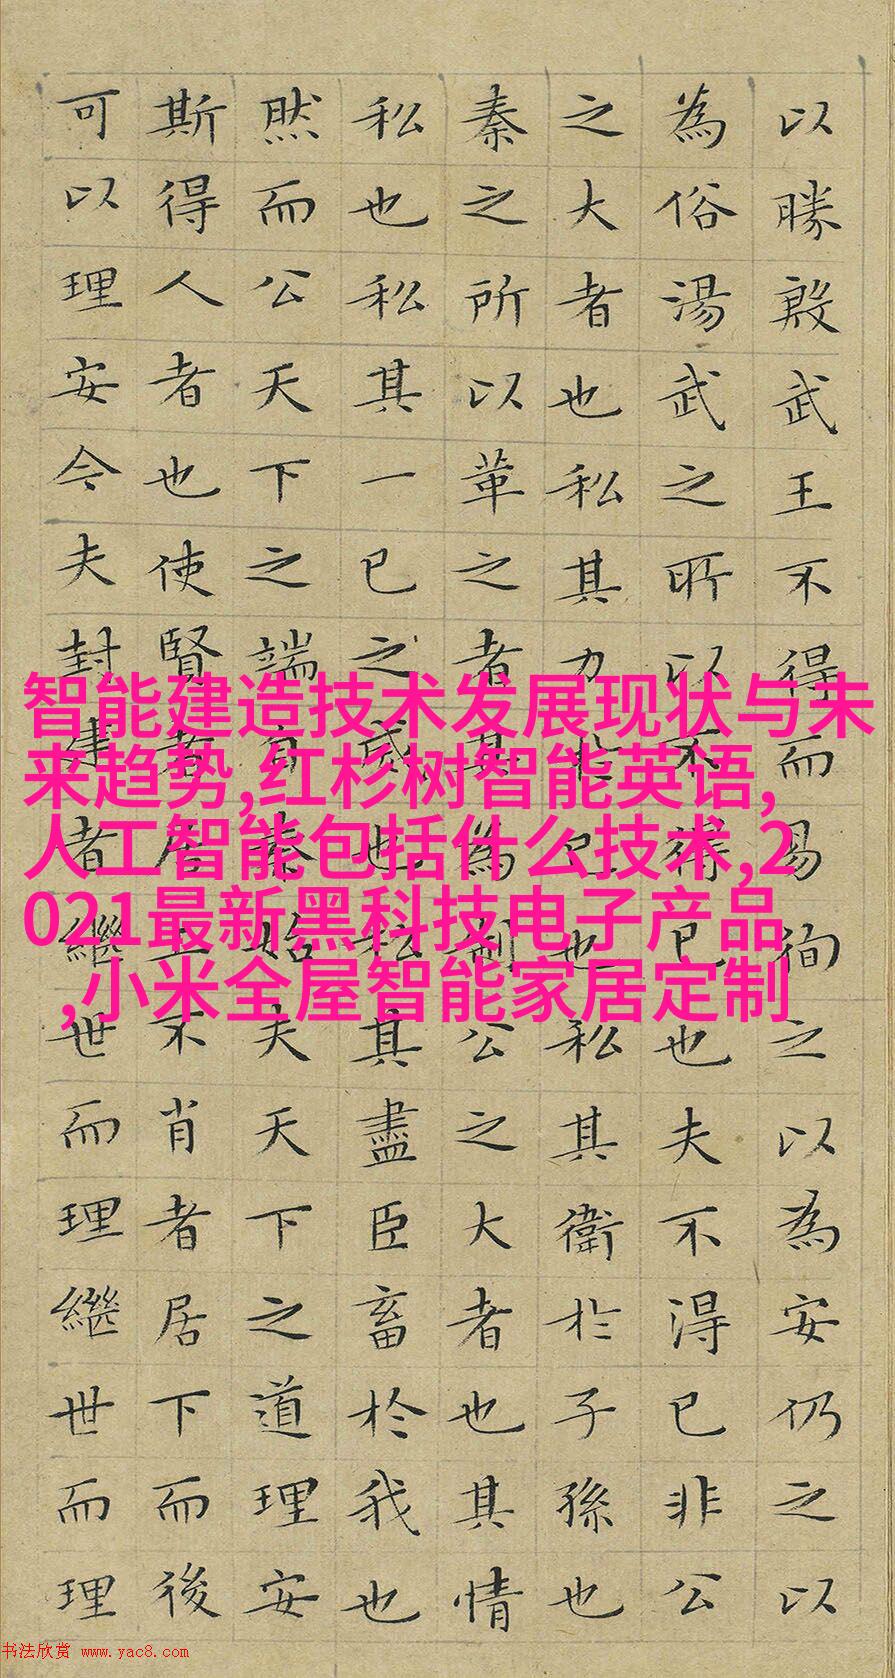 以勝殷武王不得而易徇之以為安仍之以
為俗湯武之所以不得已也夫不得已非公
之大者也私其力於己也私其衛於子孫也
秦之所以革之者其為制公之大者也其情
私也私其一己之威也私其盡臣畜於我也
然而公天下之端自秦始夫天下之道理安
斯得人者也使賢者居上不肖者居下而後
可以理安今夫封建者繼世而理繼世而理
智能建造技术发展现状与未
来趋势,红杉树智能英语,
人工智能包括什么技术,2
021最新黑科技电子产品
,小米全屋智能家居定制
书法欣赏 www.yac8.com